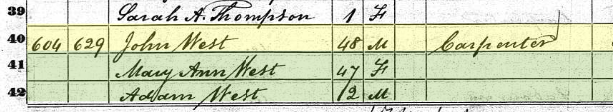 39 Sarah A. Thompson 1 F
40 604 629 John West 48 M Carpenter
41 Mary Ann West 47 F
42 Adam West 12 M